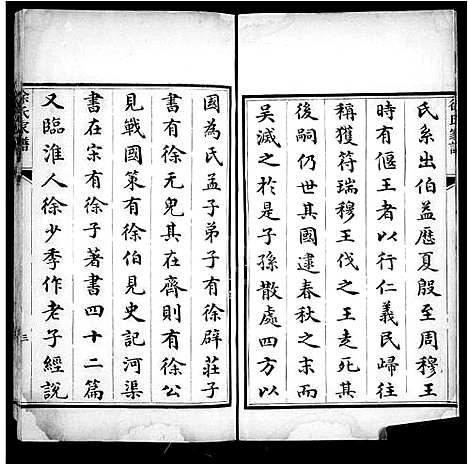 氏系出伯益歷夏殷至周穆王
時有偃王者以行仁義民歸往
稱獲符瑞穆王伐之王走死其
後嗣仍世其國逮春秋之末而
吳滅之於是子孫散處四方以
國為氏孟子弟子有徐辟莊子
書有徐无鬼其在齊則有徐公
見戰國策有徐伯見史記河渠
書在宋有徐子著書四十二篇
又臨淮人徐少季作老子經說
徐氏家譜
三